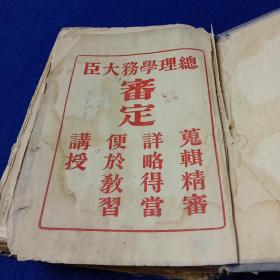 總理學務大臣
審定
蒐輯精審
詳略得當
便於教習
講授